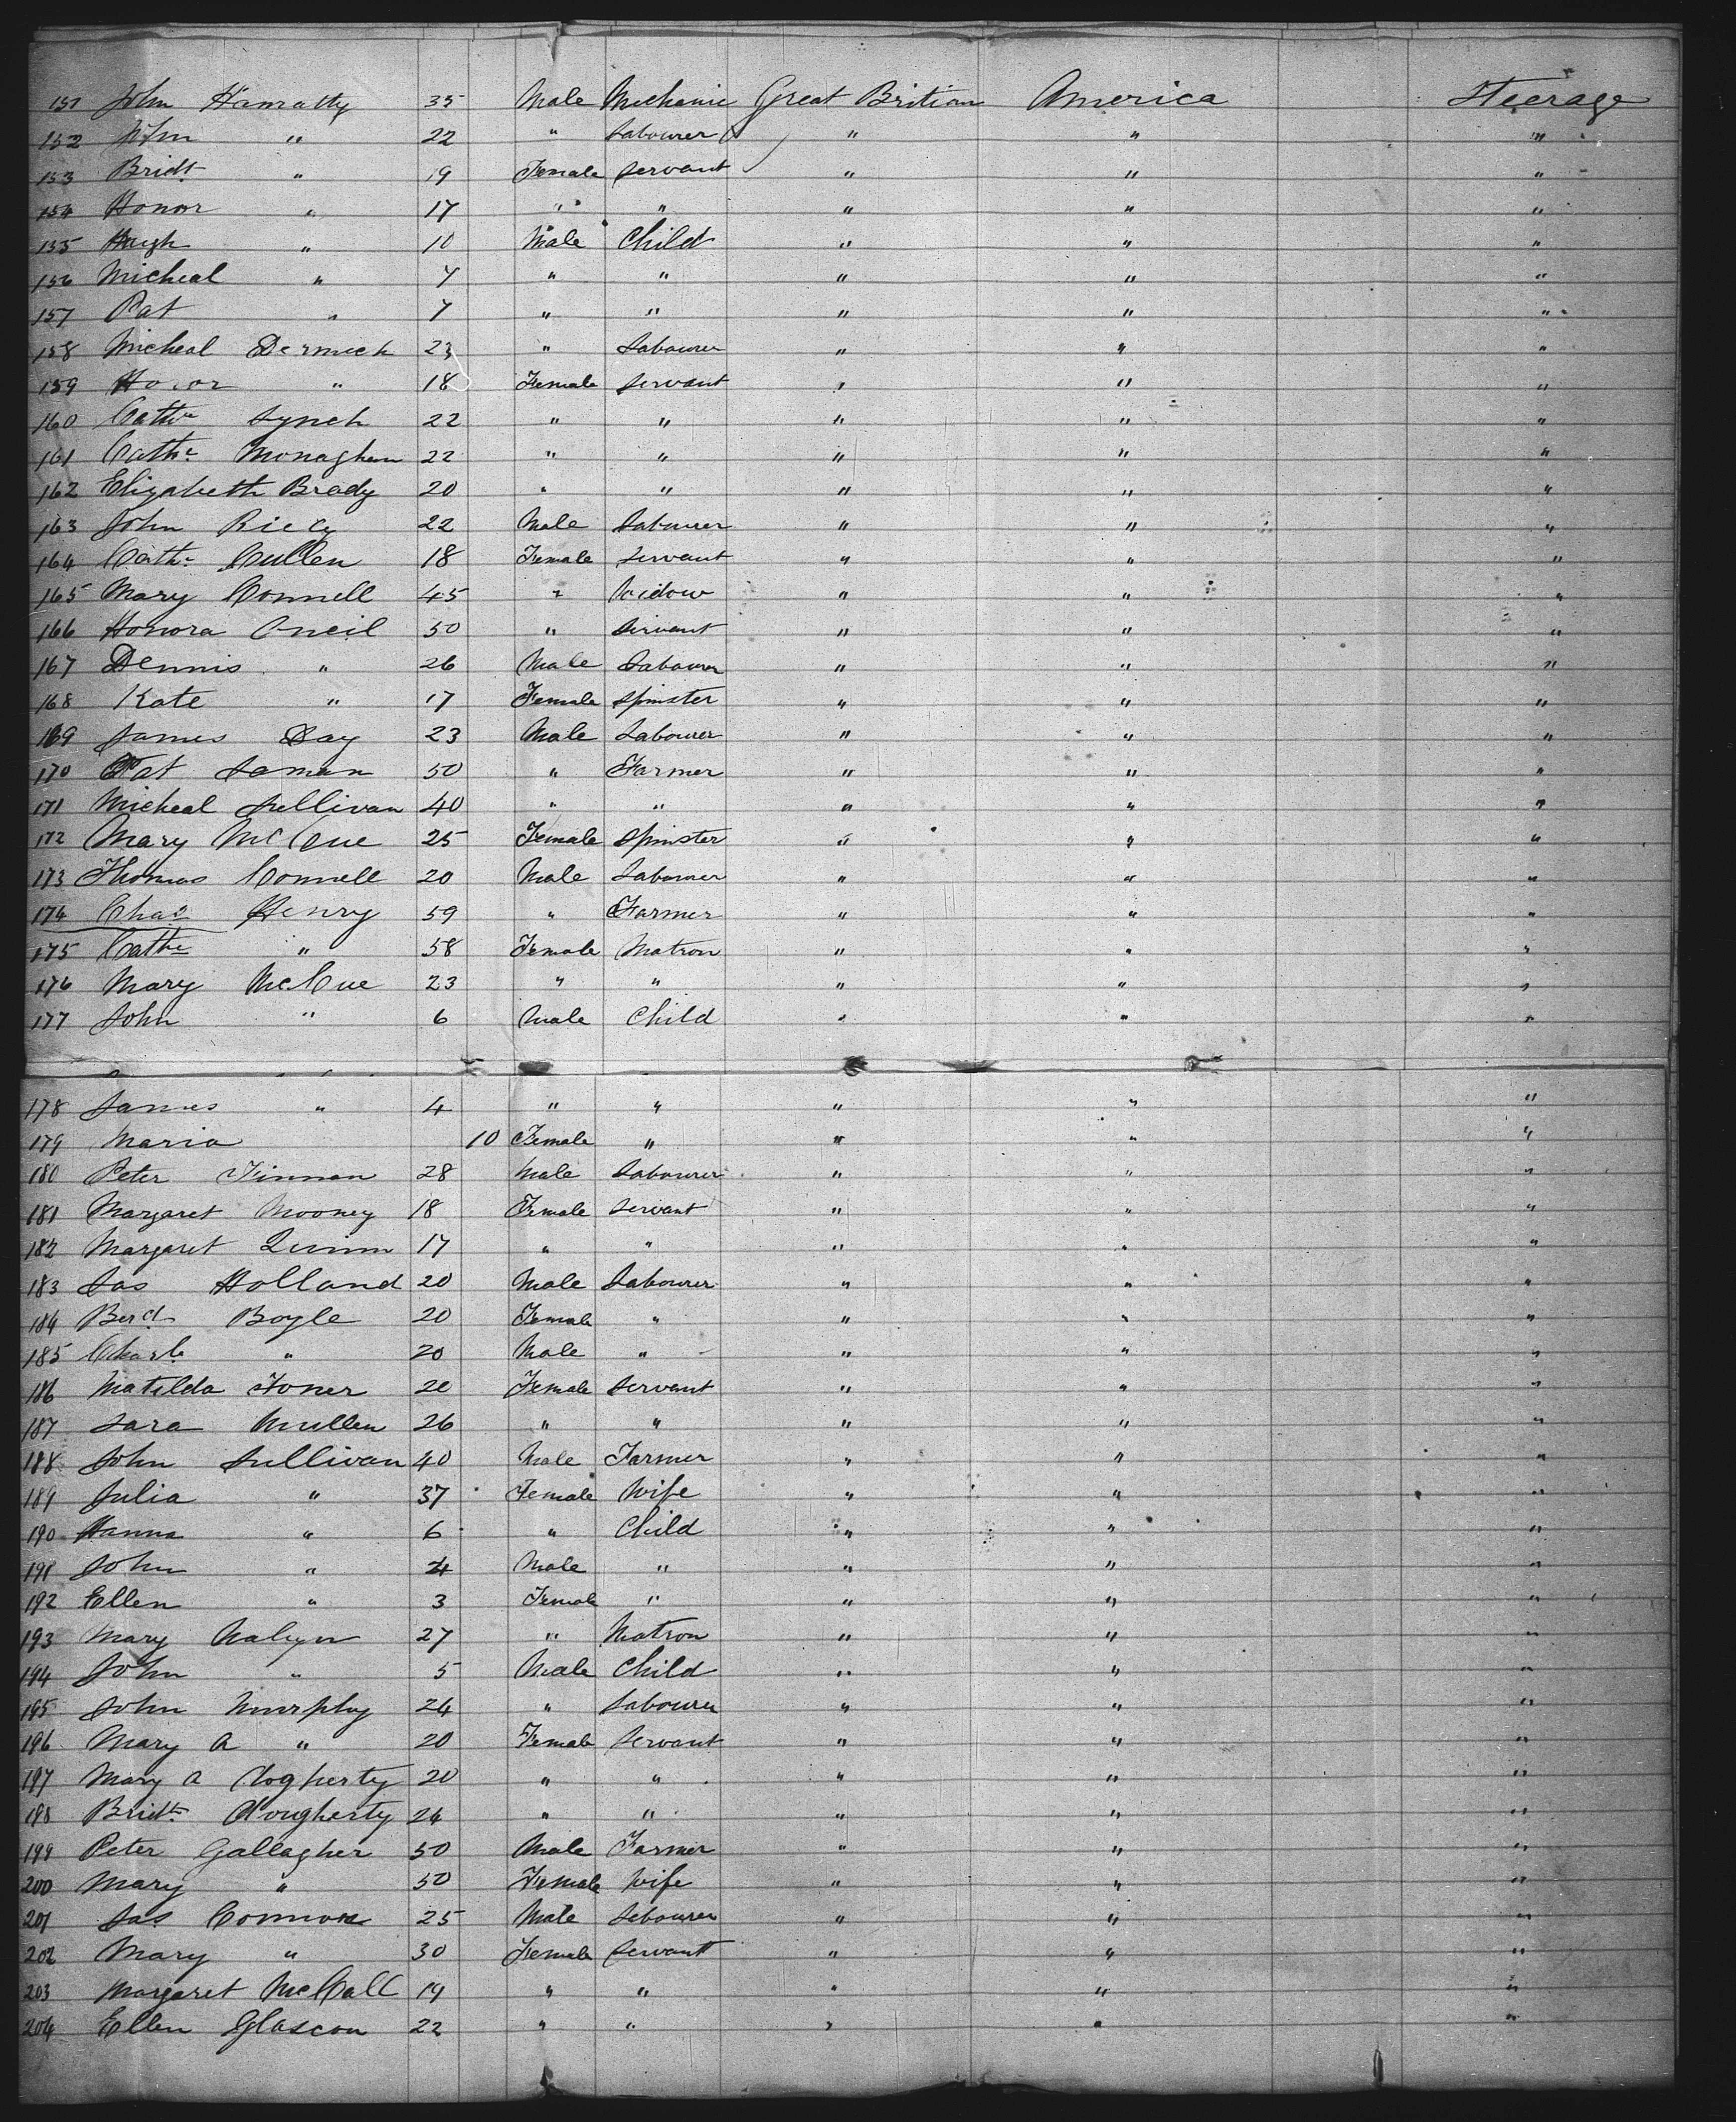 151 John Hamatty 35 Male Mechanic Great Britian America Steerage
152 John " 22 " Labourer " " "
153 Bridt " 19 Female Servant " " "
154 Honor " 17 " " " " "
155 Hugh " 10 Male Child " " "
156 Micheal " 7 " " " " "
157 Pat " 7 " " " " "
158 Micheal 23 " Labourer " " "
159 Honor " 18 Female Servant " " "
160 Cathe Lynch 22 " " " " "
161 Cathe Monaghan 22 " " " " "
162 Elizabeth Brady 20 " " " " "
163 John 22 Male Labourer " " "
164 Cathe Cullen 18 Female Servant " " "
165 Mary Connell 45 " Widow " " "
166 Honora Oneil 50 " Servant " " "
167 Dennis " 26 Male Labourer " " "
168 Kate " 17 Female Spinster " " "
169 James Day 23 Male Labourer " " "
170 Pat 50 " Farmer " " "
171 Micheal Sullivan 40 " " " " "
172 Mary McCue 25 Female Spinster " " "
173 Thomas Connell 20 Male Labourer " " "
174 Chas Henry 59 " Farmer " " "
175 Cathe " 58 Female Matron " " "
176 Mary McCue 23 " " " " "
177 John " 6 Male Child " " "
178 James " 4 " " " " "
179 Maria 10 Female " " " "
180 Peter Finnan 28 Male Labourer " " "
181 Margaret Mooney 18 Female Servant " " "
182 Margaret Quinn 17 " " " " "
183 Jas Holland 20 Male Labourer " " "
184 Berd Boyle 20 Female " " " "
185 Charls " 20 Male " " " "
186 Matilda Toner 20 Female Servant " " "
187 Sara Mullen 26 " " " " "
188 John Sullivan 40 Male Farmer " " "
189 Julia " 37 Female Wife " " "
190 Hanna " 6 " Child " " "
191 John " 4 Male " " " "
192 Ellen " 3 Female " " " "
193 Mary 27 " Matron " " "
194 John " 5 Male Child " " "
195 John Murphy 24 " Labourer " " "
196 Mary A " 20 Female Servant " " "
197 Mary A Dogherty 20 " " " " "
198 Bridt Dougherty 24 " " " " "
199 Peter Gallagher 50 Male Farmer " " "
200 Mary " 50 Female Wife " " "
201 Jas Connor 25 Male Labourer " " "
202 Mary " 30 Female Servant " " "
203 Margaret McCall 19 " " " " "
204 Ellen Glascon 22 " " " " "